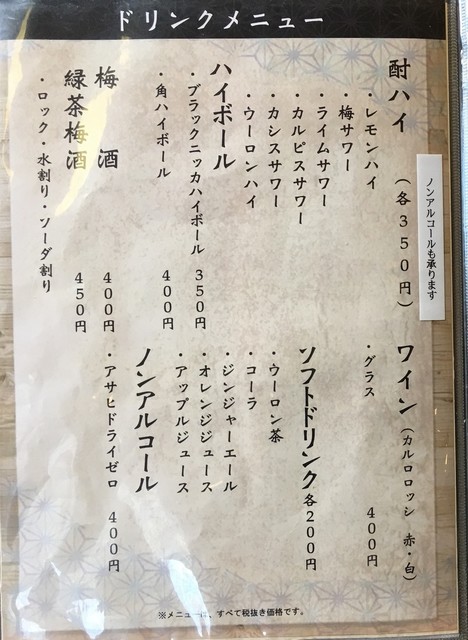 ドリンクメニュー
酎ハイ（各350円）
ノンアルコールも承ります
・レモンハイ
・梅サワー
・ライムサワー
・カルピスサワー
・カシスサワー
・ウーロンハイ
ハイボール
・ブラックニッカハイボール 350円
・角ハイボール 400円
梅酒 400円
緑茶梅酒 450円
・ロック・水割り・ソーダ割り
ワイン（カルロロッシ 赤・白）
・グラス 400円
ソフトドリンク各200円
・ウーロン茶
・コーラ
・ジンジャーエール
・オレンジジュース
・アップルジュース
ノンアルコール
・アサヒドライゼロ 400円
※メニューは、すべて税抜き価格です。